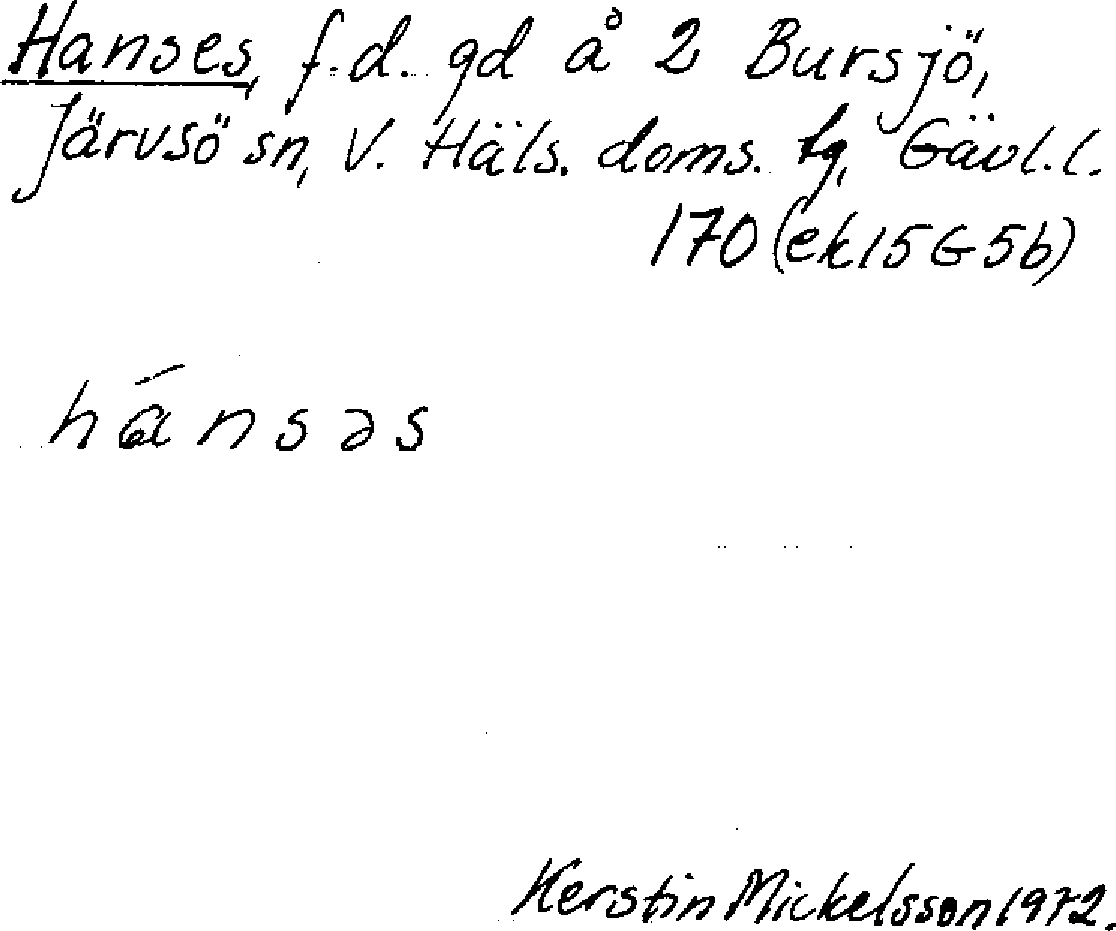 Hanses, f.d. gd å 2 Bursjö,
Järvsö sn, V. Häls. doms. tg, Gävl.l.
170 (ek 15 G 5b)
hánsəs
Kerstin Mickelsson 1972.